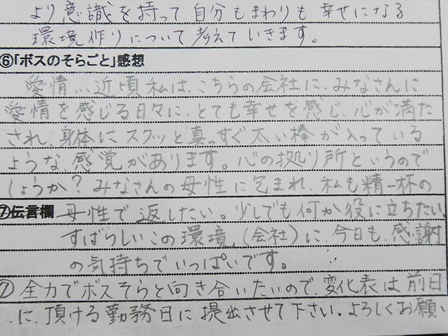 より意識を持って自分もまわりも幸せになる
環境作りについて考えていきます。
⑥「ボスのそらごと」感想
愛情…近頃私は、こちらの会社に、みなさんに
愛情を感じる日々に、とても幸せを感じ、心が満た
され、身体にスクッと真すぐ太い棒が入っている
ような感覚があります。心の拠り所というので
しょうか？みなさんの母性に包まれ、私も精一杯の
⑦伝言欄 母性で返したい。少しでも何か役に立ちたい
すばらしいこの環境(会社)に、今日も、感謝
の気持ちでいっぱいです。
⑦ 全力でボスそらと向き合いたいので、変化表は前日
に頂ける勤務日に提出させて下さい。よろしくお願い